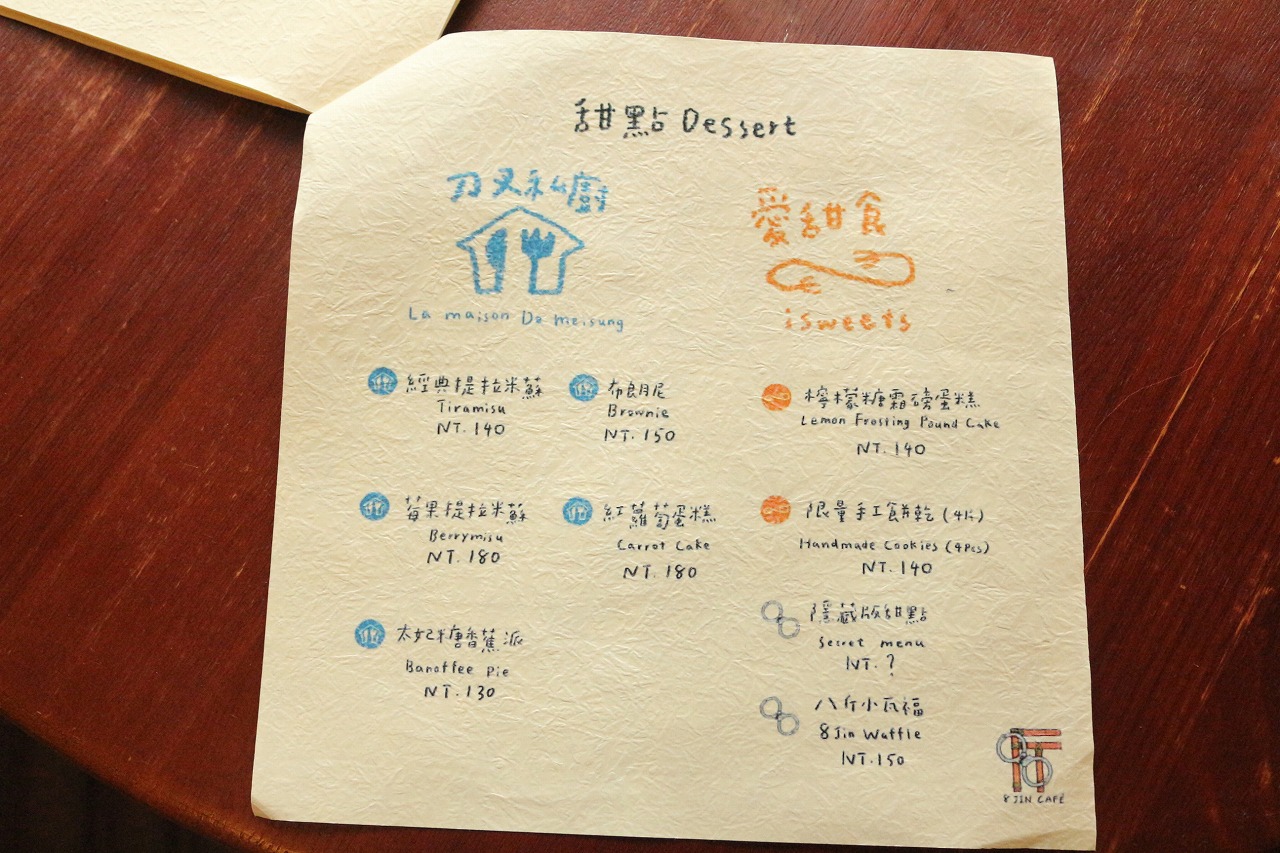 甜點 Dessert
刀叉私廚
La maison De meisung
愛甜食
isweets
經典提拉米蘇
Tiramisu
NT. 140
布朗尼
Brownie
NT. 150
檸檬糖霜磅蛋糕
Lemon Frosting Pound Cake
NT. 140
莓果提拉米蘇
Berrymisu
NT. 180
紅蘿蔔蛋糕
Carrot Cake
NT. 180
限量手工餅乾 (4片)
Handmade Cookies (4Pcs)
NT. 140
太妃糖香蕉派
Banoffee pie
NT. 130
隱藏版甜點
Secret menu
NT. ?
八斤小瓦福
8 Jin Waffle
NT. 150
8 JIN CAFÉ